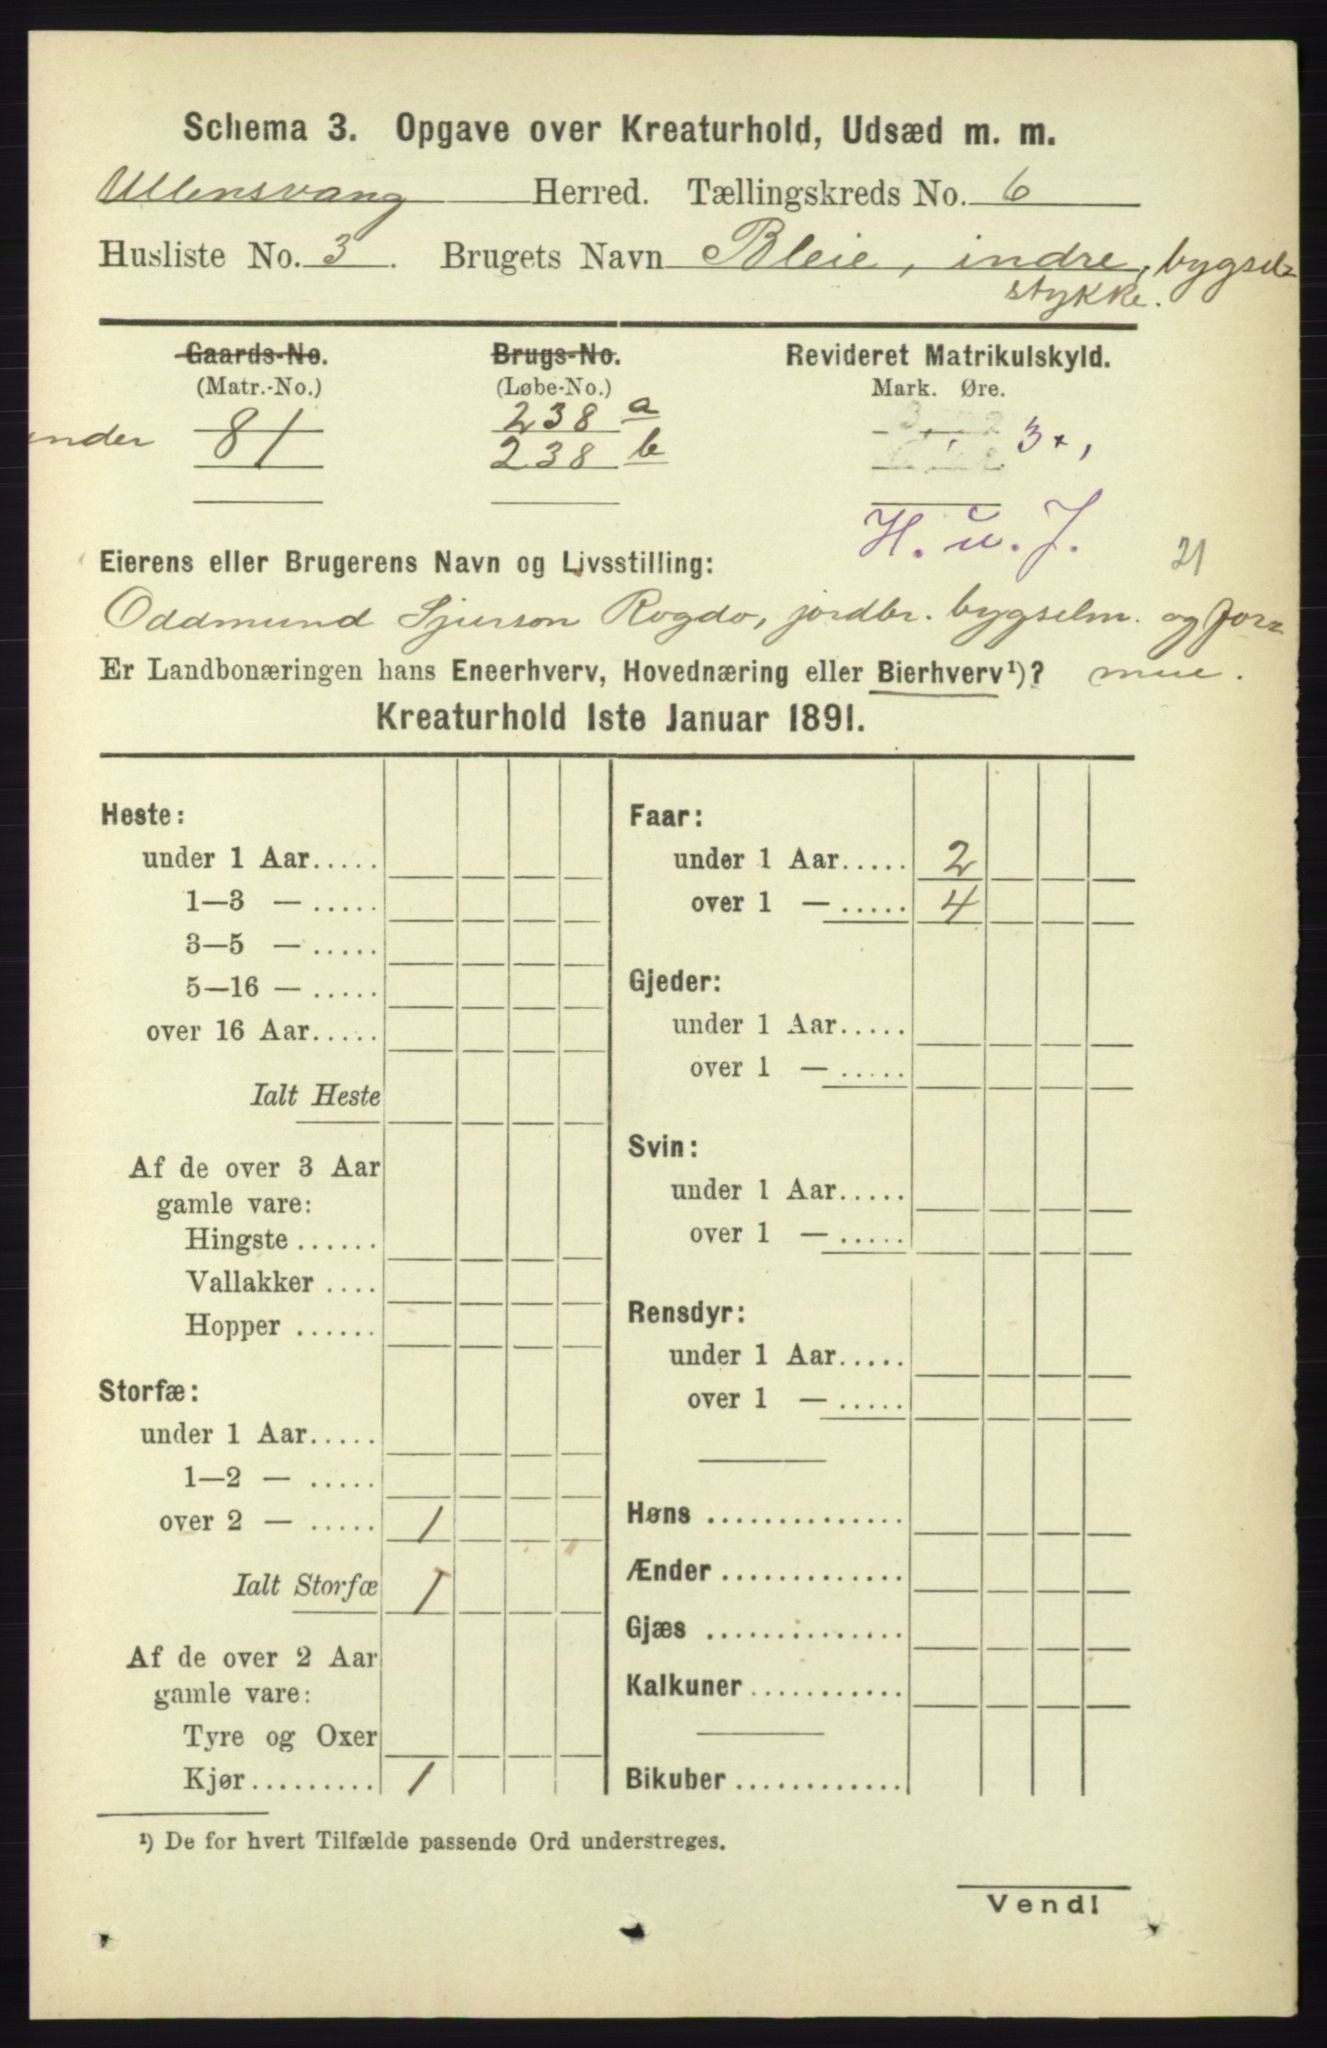 Schema 3. Opgave over Kreaturhold, Udsæd m. m.
Ullensvang Herred. Tællingskreds No. 6
Husliste No. 3. Brugets Navn Bleie, indre, bygsel-
stykke.
Gaards-No. Brugs-No. Revideret Matrikulskyld.
(Matr.-No.) (Løbe-No.) Mark. Øre.
under 81 238 a
238 b 3
H. u. J.
21
Eierens eller Brugerens Navn og Livsstilling:
Oddmund Sjurson Rogdo, jordbr. bygselm. og Jor-
Er Landbonæringen hans Eneerhverv, Hovednæring eller Bierhverv¹)?
Kreaturhold 1ste Januar 1891.
Heste:
under 1 Aar.....
1—3 — .....
3—5 — .....
5—16 — .....
over 16 Aar.....
Ialt Heste
Af de over 3 Aar
gamle vare:
Hingste ......
Vallakker ....
Hopper ......
Storfæ:
under 1 Aar.....
1—2 — .....
over 2 — ..... 1
Ialt Storfæ 1
Af de over 2 Aar
gamle vare:
Tyre og Oxer
Kjør......... 1
Faar:
under 1 Aar..... 2
over 1 — ..... 4
Gjeder:
under 1 Aar.....
over 1 — .....
Svin:
under 1 Aar.....
over 1 — .....
Rensdyr:
under 1 Aar.....
over 1 — .....
Høns ..............
Ænder .............
Gjæs ..............
Kalkuner...........
Bikuber ............
¹) De for hvert Tilfælde passende Ord understreges.
Vend!